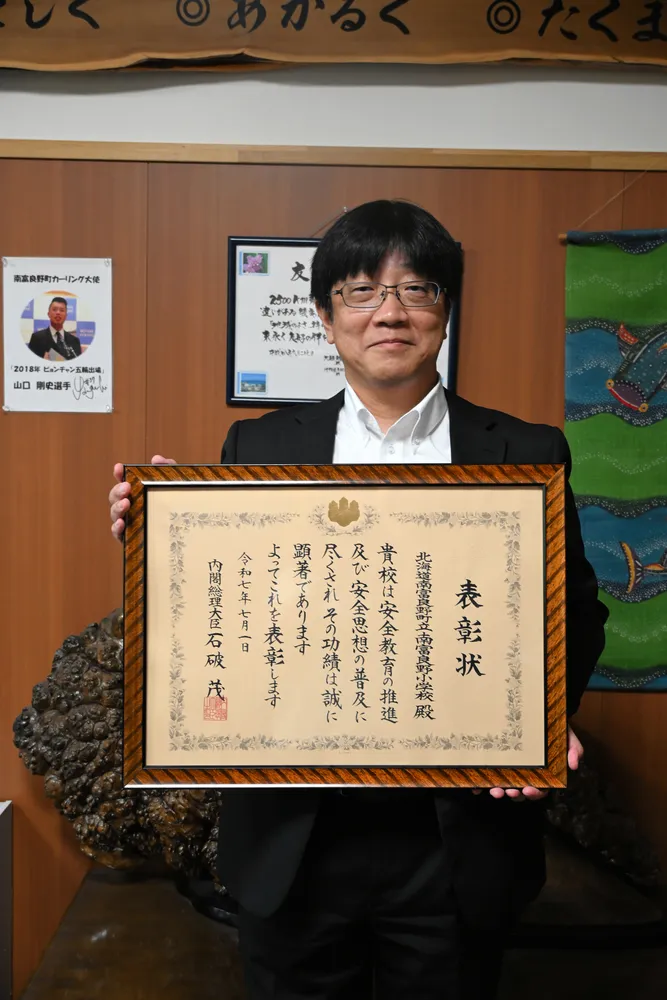 しく ◎ あかるく ◎ たくま
南富良野町カーリング大使
「2018年 ピョンチャン五輪出場」
山口 剛史選手
友
表彰状
北海道南富良野町立南富良野小学校 殿
貴校は安全教育の推進
及び安全思想の普及に
尽くされ その功績は誠に
顕著であります
よってこれを表彰します
令和七年七月一日
内閣総理大臣 石破 茂